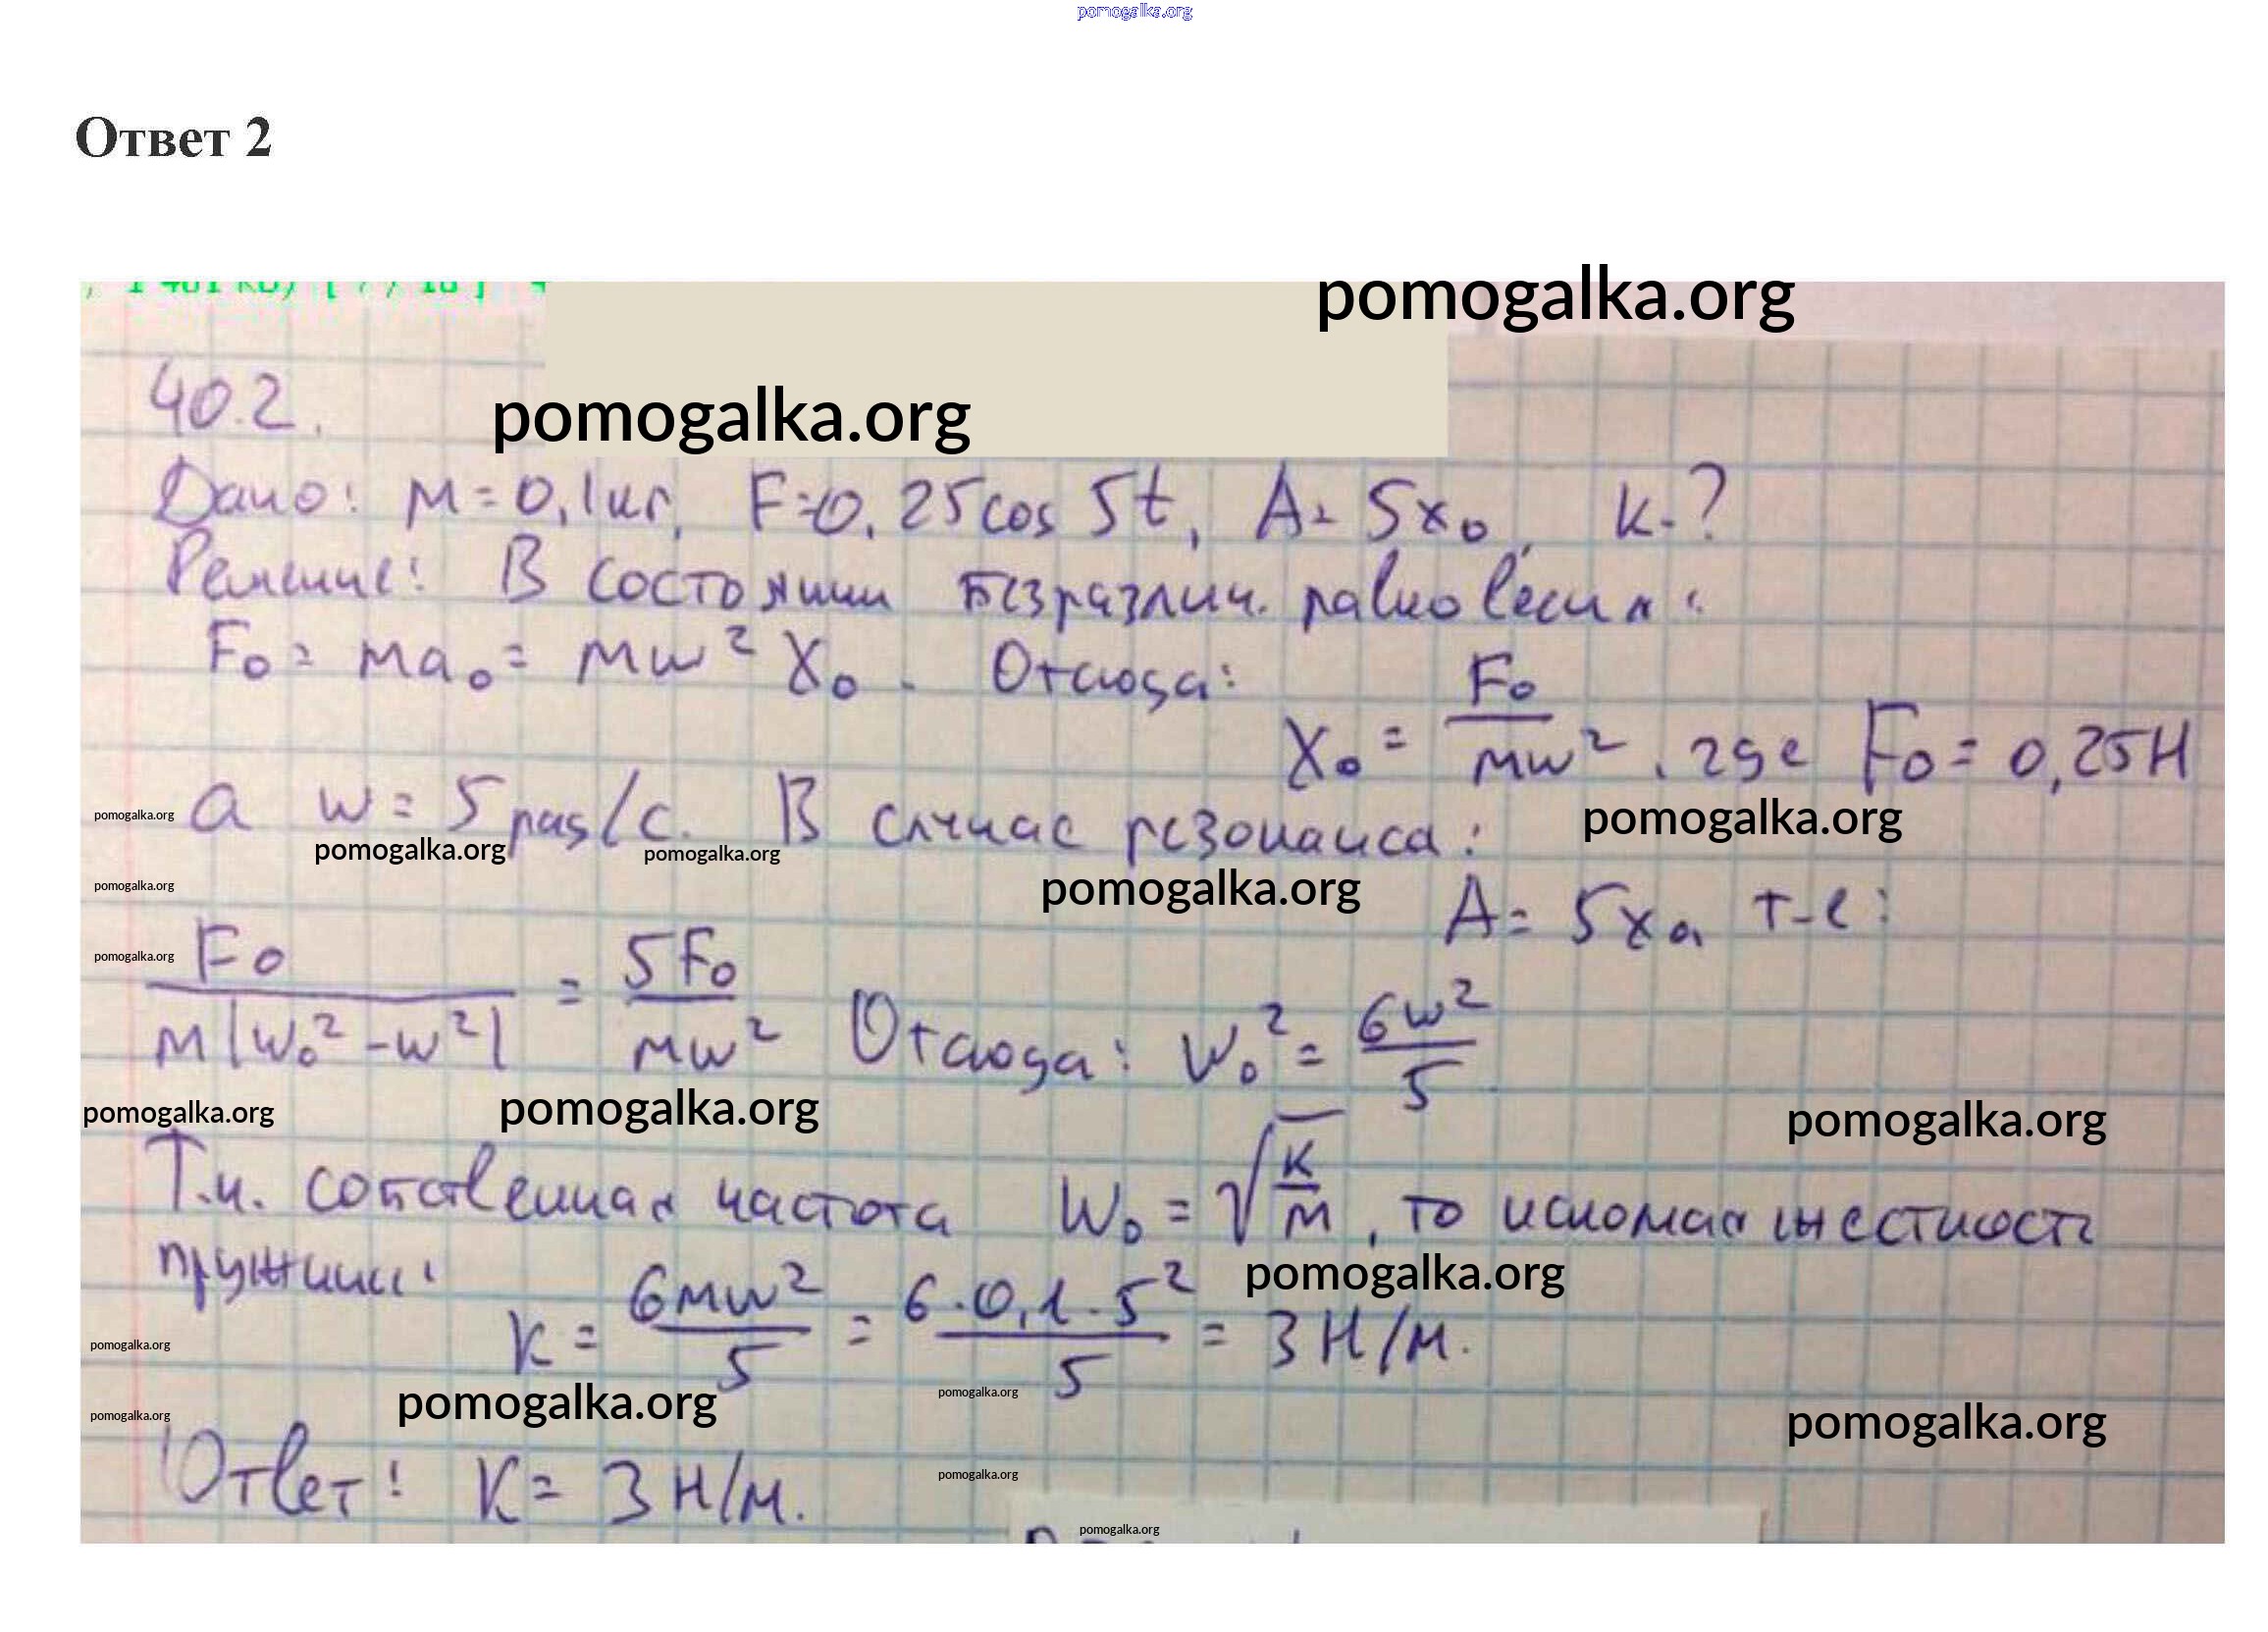 pomogalka.org
Ответ 2
pomogalka.org
40.2.
pomogalka.org
Дано: m=0,1кг, F=0.25cos 5t, A=5x₀, k-?
Решение: В состоянии безразлич. равновесия:
F₀ = ma₀ = mw² X₀. Отсюда:
X₀ = F₀/mw², где F₀ = 0,25Н
а w = 5 рад/с. В случае резонанса:
pomogalka.org pomogalka.org
pomogalka.org pomogalka.org
pomogalka.org pomogalka.org
A = 5x₀, т-е:
pomogalka.org
F₀/m|w₀²-w²| = 5F₀/mw² Отсюда: w₀² = 6w²/5
pomogalka.org pomogalka.org pomogalka.org
Т.к. собственная частота w₀ = √k/m, то искомая жесткость
пружины:
pomogalka.org
k = 6mw²/5 = 6·0,1·5²/5 = 3 Н/м.
pomogalka.org
pomogalka.org pomogalka.org
pomogalka.org pomogalka.org
Ответ: K = 3 Н/м.
pomogalka.org
pomogalka.org